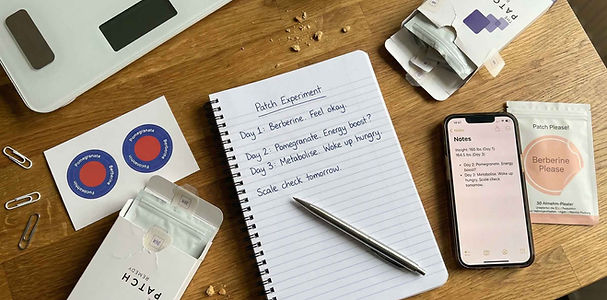 Patch Experiment
Day 1: Berberine. Feel okay.
Day 2: Pomegranate. Energy boost?
Day 3: Metabolise. Woke up hungry.
Scale check tomorrow.
Pomegranate
Pomegranate
THE
PATCH
THE
PATCH
REMEDY
Notes
Notes
Height: 165 lbs. (Day 1)
164.5 lbs. (Day 3)
• Day 2: Pomegranate. Energy
boost?
• Day 3: Metabolise. Woke up
hungry. Scale check
tomorrow.
Patch Please!
Berberine
Please